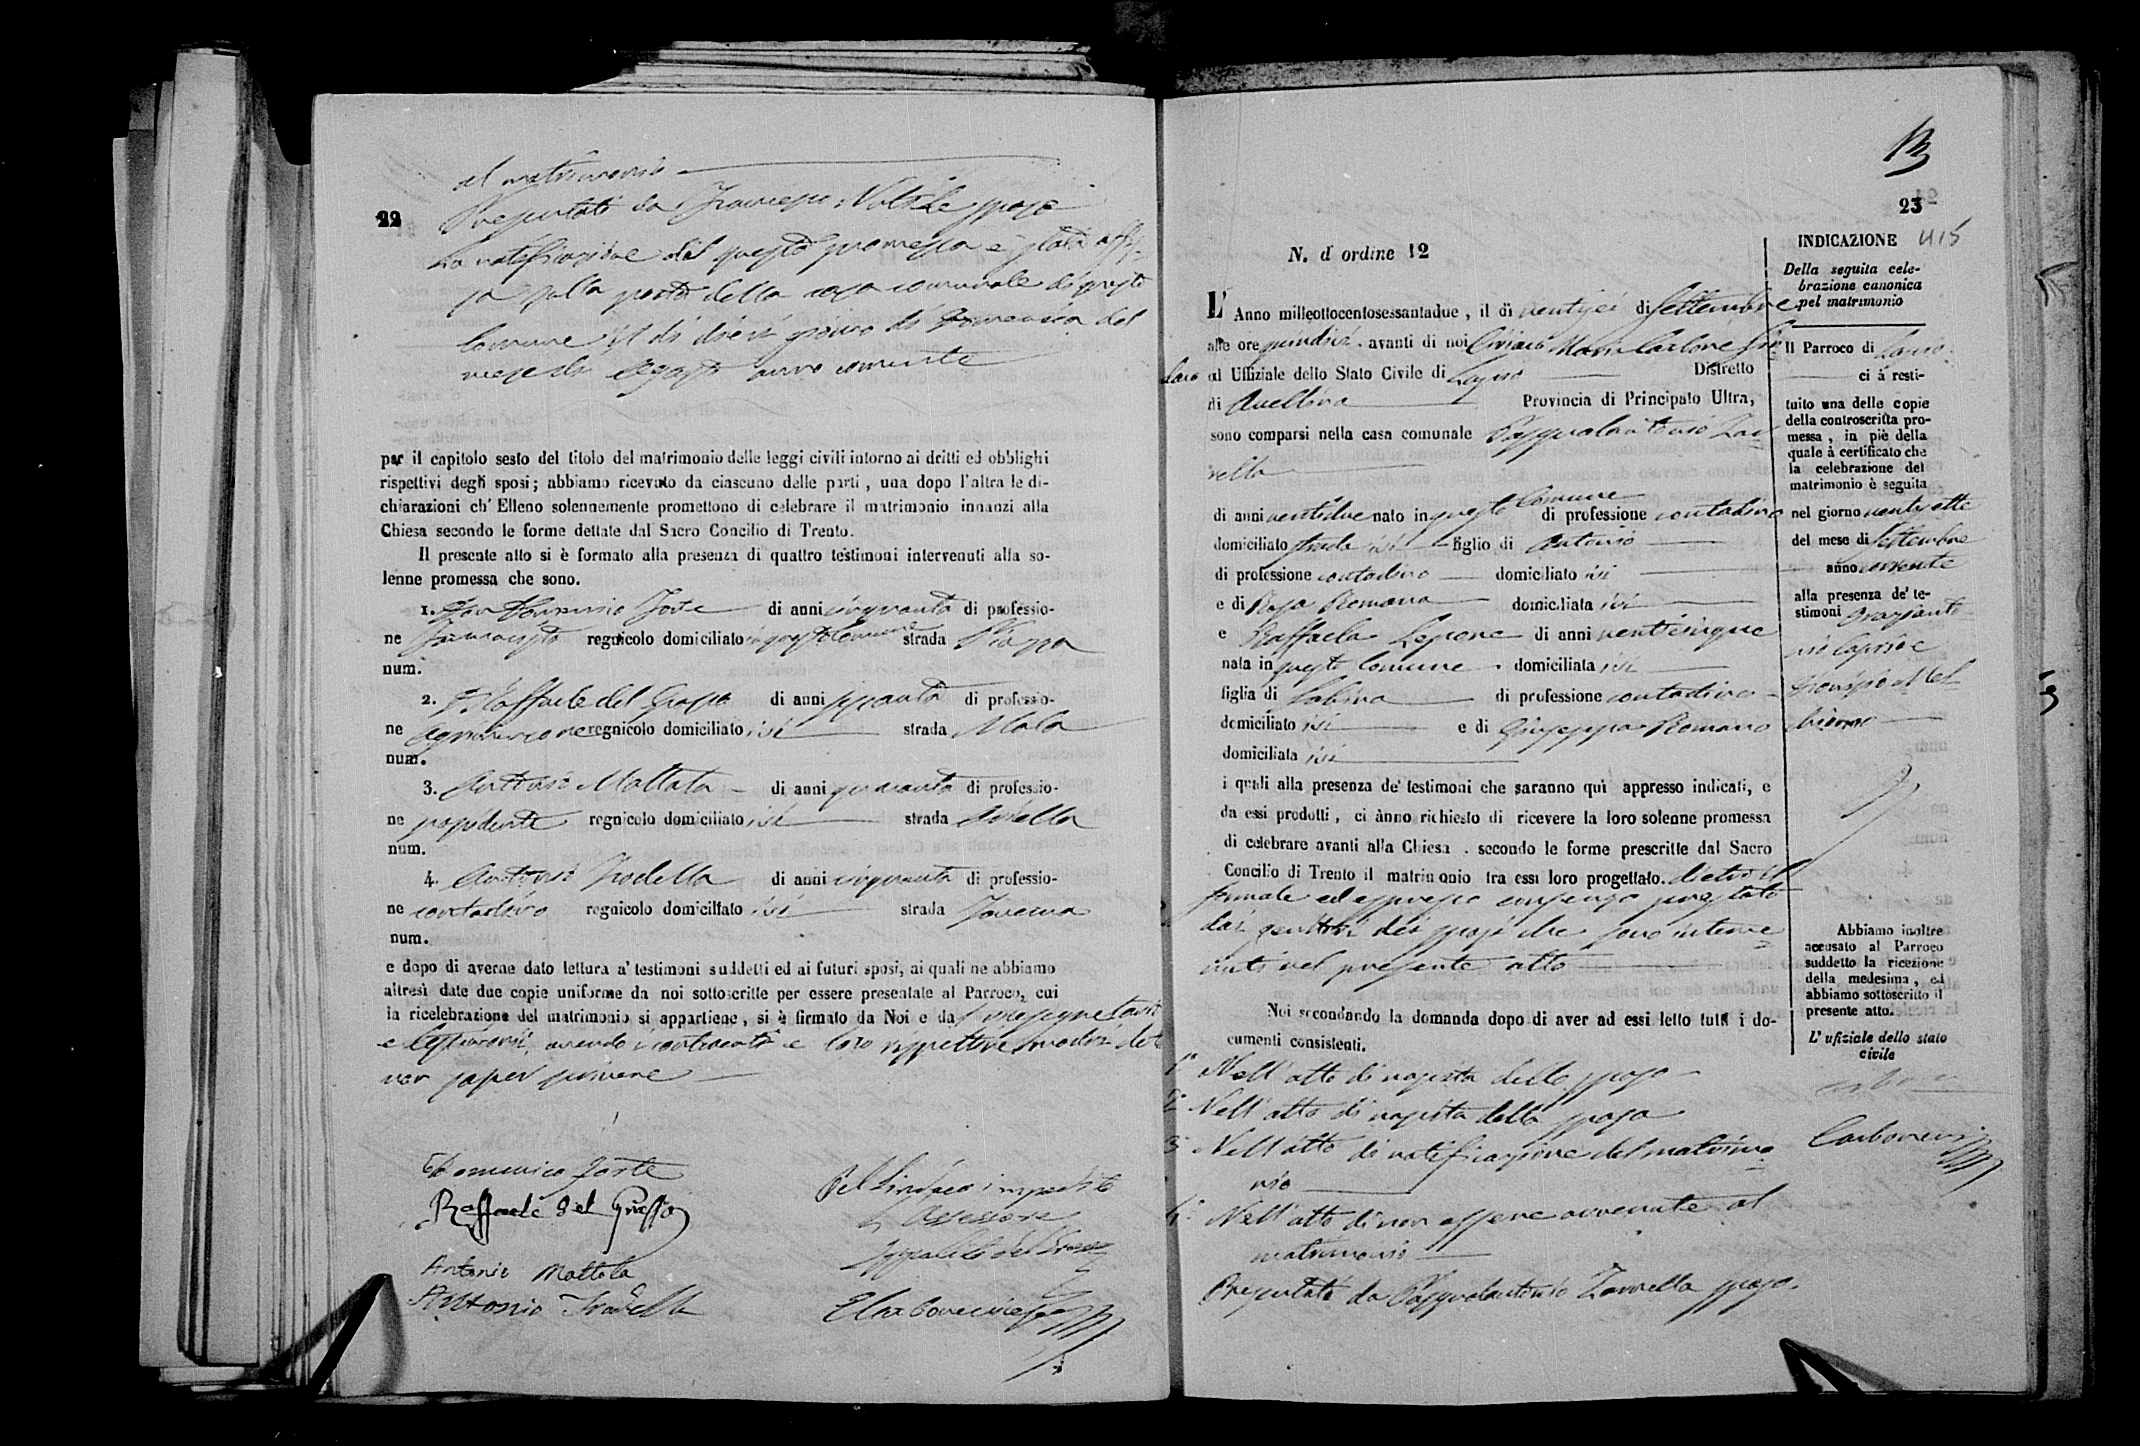 22
al matrimonio
Presentati da sposo
La notificazione di questa promessa è stata affis-
sa sulla porta della casa comunale di questo
Comune il di dieci giorno di Domenica del
mese di Agosto anno corrente
per il capitolo sesto del titolo del matrimonio delle leggi civili intorno ai dritti ed obblighi
rispettivi degli sposi; abbiamo ricevuto da ciascuno delle parti, una dopo l'altra le di-
chiarazioni ch' Elleno solennemente promettono di celebrare il matrimonio innanzi alla
Chiesa secondo le forme dettate dal Sacro Concilio di Trento.
Il presente atto si è formato alla presenza di quattro testimoni intervenuti alla so-
lenne promessa che sono.
1. Domenico Forte di anni cinquanta di professio-
ne Farmacista regnicolo domiciliato in questo Comune strada Piazza
num.
2. Raffaele del Grosso di anni sessanta di professio-
ne Agrimensore regnicolo domiciliato ivi strada Mola
num.
3. Antonio Mottola di anni quaranta di professio-
ne possidente regnicolo domiciliato ivi strada
num.
4. Antonio di anni cinquanta di professio-
ne contadino regnicolo domiciliato ivi strada
num.
e dopo di averne dato lettura a' testimoni suddetti ed ai futuri sposi, ai quali ne abbiamo
altresì date due copie uniforme da noi sottoscritte per essere presentate al Parroco, cui
la ricelebrazione del matrimonio si appartiene, si è firmato da Noi e da
e testimonii, avendo i contraenti e loro rispettivi detto
non saper scrivere
Domenico Forte
Raffaele del Grosso
Antonio Mottola
Antonio
Pel Sindaco impedito
L'Assessore
23
415
N. d' ordine 12
L' Anno milleottocentosessantadue, il di ventisei di Settembre
alle ore quindici avanti di noi Ciriaco Maria Carbone Sin-
daco ed Uffiziale dello Stato Civile di Lauro Distretto
di Avellino Provincia di Principato Ultra,
sono comparsi nella casa comunale Pasqualantonio Zan-
rella
di anni ventidue nato in questo Comune di professione contadino
domiciliato strada ivi figlio di Antonio
di professione contadino domiciliato ivi
e di Rosa Romano domiciliata ivi
e Raffaela Lepore di anni venticinque
nata in questo Comune domiciliata ivi
figlia di Sabino di professione contadino
domiciliato ivi e di Giuseppa Romano
domiciliata ivi
i quali alla presenza de' testimoni che saranno qui appresso indicati, e
da essi prodotti, ci ànno richiesto di ricevere la loro solenne promessa
di celebrare avanti alla Chiesa, secondo le forme prescritte dal Sacro
Concilio di Trento il matrimonio tra essi loro progettato. dietro il
formale ed espresso consenso prestato
dai genitori dei sposi che sono interve-
nuti nel presente atto
Noi secondando la domanda dopo di aver ad essi letto tutti i do-
cumenti consistenti.
1º Nell' atto di nascita dello sposo
2º Nell' atto di nascita della sposa
3º Nell' atto di notificazione del matrimo-
nio
4º Nell' atto di non essere avvenute al
matrimonio
Presentati da Pasqualantonio Zanrella sposo.
INDICAZIONE
Della seguita cele-
brazione canonica
pel matrimonio
Il Parroco di Lauro
ci à resti-
tuito una delle copie
della controscritta pro-
messa, in piè della
quale à certificato che
la celebrazione del
matrimonio è seguita
nel giorno ventisette
del mese di Settembre
anno corrente
alla presenza de' te-
stimoni Grazianto-
nio Caprio e
Abbiamo inoltre
accusato al Parroco
suddetto la ricezione
della medesima, ed
abbiamo sottoscritto il
presente atto.
L' ufiziale dello stato
civile